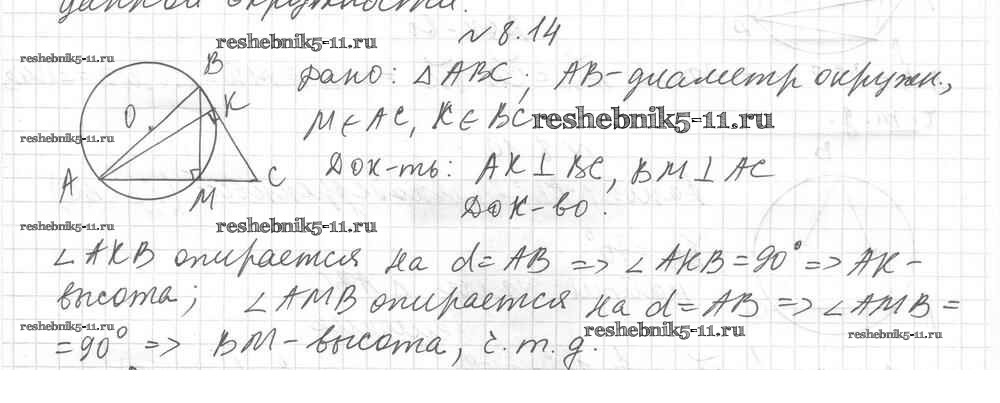 данной окружности.
№ 8.14
reshebnik5-11.ru
reshebnik5-11.ru
Дано: △ABC; AB-диаметр окружн.,
M∈AC, K∈BC
reshebnik5-11.ru
reshebnik5-11.ru
B
K
O
A
M
C
Док-ть: AK⊥BC, BM⊥AC
Док-во.
reshebnik5-11.ru
reshebnik5-11.ru
∠AKB опирается на d=AB => ∠AKB=90° => AK-
высота; ∠AMB опирается на d=AB => ∠AMB=
=90° => BM-высота, ч.т.д.
reshebnik5-11.ru
reshebnik5-11.ru
reshebnik5-11.ru